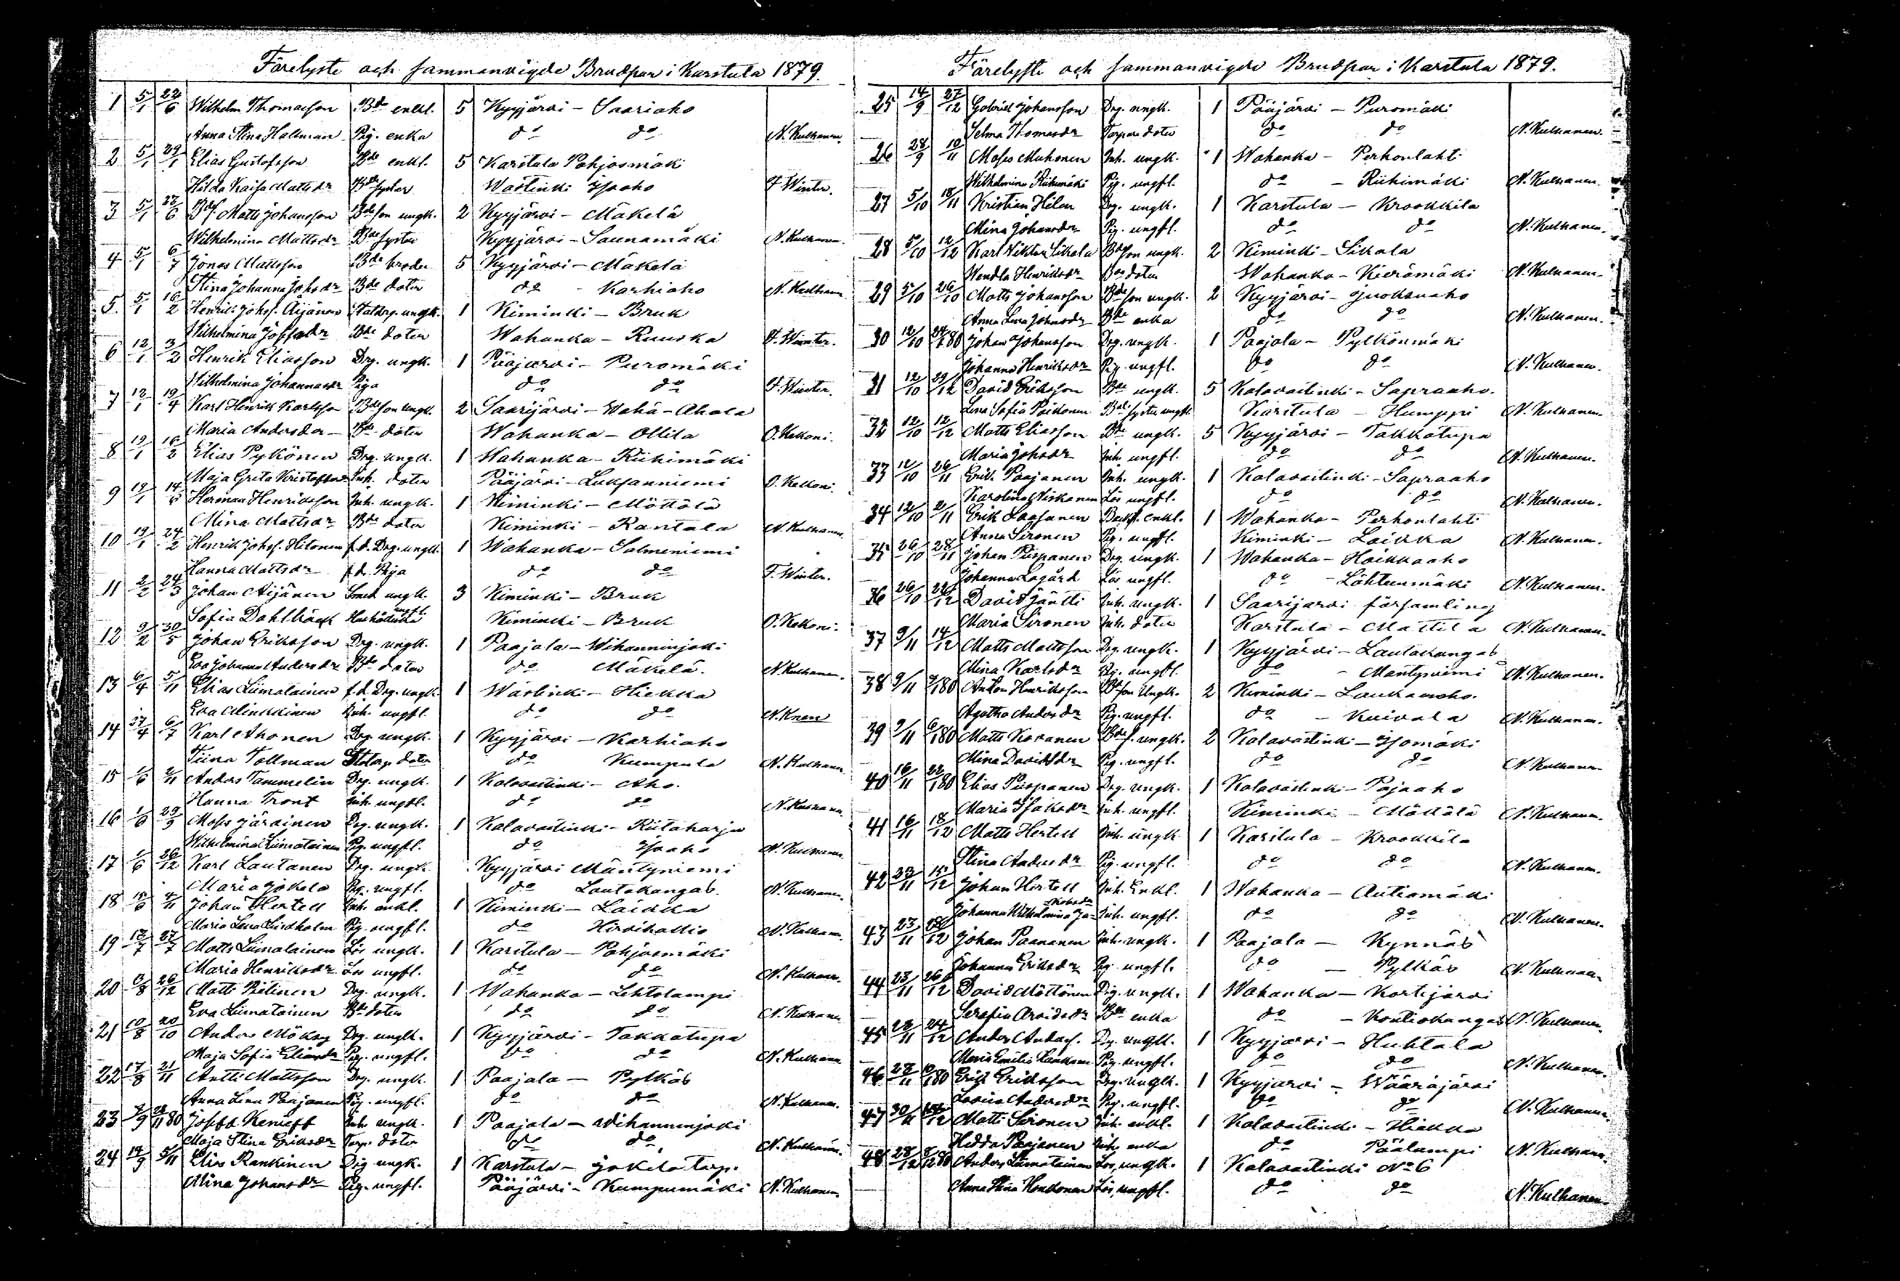 Förelyste och sammanvigde Brudpar i Karstula 1879.
1 5/1 22/6 Wilhelm Thomasson Bde enkl. 5 Kyyjärvi – Saariaho
Anna Stina Hallman Pig. enka do do N. Kulhanen.
2 5/1 29/1 Elias Gustafsson Bde enkl. 5 Karstula Pohjosmäki
Hilda Kaisa Mattsdr Bde syster Wastinki Isoaho F. Winter.
3 5/1 22/6 Matts Johansson Bde son ungk. 2 Kyyjärvi – Mäkelä
Wilhelmina Mattsdr Bde syster Kyyjärvi – Saunamäki N. Kulhanen.
4 5/1 6/7 Jonas Mattsson Bde broder 5 Kyyjärvi – Mäkelä
Stina Johanna Johsdr Bde doter do – Karhiaho N. Kulhanen
5. 5/1 16/2 Henrik Johss. Äijänen Statdrg. ungk. 1 Kiminki – Bruk
Wilhelmina Josefsdr Bde doter Wahanka – Ruuska F. Winter.
6 12/1 3/2 Henrik Eliasson Drg. ungk. 1 Pääjärvi – Puromäki
Wilhelmina Johannsdr Piga do do F. Winter.
7 12/1 19/4 Karl Henrik Karlsson Bde son ungk. 2 Saarijärvi – Wähä-Ahola
Maria Andersdr Bde doter Wahanka – Ollila O. Kekoni.
8 19/1 16/2 Elias Pykönen Drg. ungk. 1 Wahanka – Riihimäki
Maja Greta Kristoffersdr Inh. doter Pääjärvi – Luksanniemi O. Kekoni.
9 19/1 14/4 Herman Henriksson Inh. ungk. 1 Kiminki – Möttölä
Mina Mattsdr Bde doter Kiminki – Rantala N. Kulhanen
10 19/1 24/2 Henrik Johss. Hitonen f.d. Drg. ungk. 1 Wahanka – Salmeniemi
Hanna Mattsdr f.d. Piga do do F. Winter.
11 2/2 24/3 Johan Äijänen Smed ungk. 3 Kiminki – Bruk
Sofia Dahlbäck Hushåderska ungfl. Kiminki – Bruk O. Kekoni.
12 9/2 30/5 Johan Eriksson Drg. ungk. 1 Paajala – Wihanninjoki
Eva Johanna Andersdr Bde doter do Mäkelä. N. Kulhanen.
13 6/4 5/11 Elias Liimatainen f.d. Drg. ungk. 1 Wastinki – Hiekka
Eva Minkkinen Inh. ungfl. do do
14 27/4 6/7 Karl Ahonen Drg. ungk. 1 Kyyjärvi – Karhiaho
Tiina Tollman doter do Kumpula N. Kulhanen
15 1/6 2/11 Anders Tammelin Drg. ungk. 1 Kalavastinki – Aho.
Hanna Tront Inh. ungfl. do do N. Kulhanen
16 1/6 29/9 Moses Järvinen Drg. ungk. 1 Kalavastinki – Riitaharju
Wilhelmina Liimatainen Pg. ungfl. do Isoaho N. Kulhanen
17 1/6 26/12 Karl Lautanen Drg. ungk. Kyyjärvi Mäntyniemi
Maria Jokela Pig. ungfl. do Lautakangas. N. Kulhanen
18 15/6 2/11 Johan Hertell Inh. enkl. 1 Kiminki – Laikka
Maria Lena Lindholm Pg. ungfl. do Hirvikallio N. Kulhanen.
19 13/7 27/7 Matts Liimatainen Lös ungk. 1 Karstula – Pohjosmäki
Maria Henriksdr Lös ungfl. do do N. Kulhanen.
20 3/8 26/12 Matts Piilinen Drg. ungk. 1 Wahanka – Lehtolampi
Eva Liimatainen Bde doter do do N. Kulhanen.
21 10/8 20/10 Anders Möksy Drg. ungk. 1 Kyyjärvi – Takkatupa
Maja Sofia Eliasdr Pig. ungfl. do do N. Kulhanen
22 17/8 21/11 Antti Mattsson Drg. ungk. 1 Paajala – Pylkäs
Anna Lena Paajanen Pig. ungfl. do do N. Kulhanen.
23 7/9 80 Josef Kenieff Inh. ungk. 1 Paajala – Wihanninjoki
Maja Stina Eriksdr Torp. doter do do N. Kulhanen.
24 14/9 5/11 Elias Rankinen Drg. ungk. 1 Karstula – Jokela torp.
Mina Johansdr Pig. ungfl. Pääjärvi – Kumpumäki N. Kulhanen.
Förelyste och sammanvigde Brudpar i Karstula 1879.
25 14/9 27/12 Gabriel Johansson Drg. ungk. 1 Pääjärvi – Puromäki
Selma Thomasdr Torpare doter do do N. Kulhanen.
26 28/9 10/11 Moses Muhonen Inh. ungk. 1 Wahanka – Perhonlahti
Wilhelmina Riihimäki Pig. ungfl. do – Riihimäki N. Kulhanen.
27 5/10 18/11 Kristian Hilen Drg. ungk. 1 Karstula – Krookkila
Mina Johansdr Pig. ungfl. do do N. Kulhanen.
28 5/10 12/12 Karl Viktor Sikala Bde son ungk. 2 Kiminki – Sikala
Wendla Henriksdr Bde doter Wahanka – Kierämäki N. Kulhanen.
29 5/10 26/10 Matts Johansson Bde son ungk. 2 Kyyjärvi – Juoksuaho
Anna Lena Johansdr Bde enka do do N. Kulhanen.
30 12/10 80 Johan Johansson Drg. ungk. 1 Paajala – Pylkönmäki
Johanna Henriksdr Pig. ungfl. do do N. Kulhanen.
31 12/10 29/12 David Eriksson Bde ungk. 5 Kalavastinki – Sapraaho.
Lena Sofia Poikonen Bde syster ungfl. Karstula – Humppi N. Kulhanen.
32 12/10 12/12 Matts Eliasson Bde ungk. 5 Kyyjärvi – Takkatupa
Maria Johsdr Inh. ungfl. do do N. Kulhanen.
33 12/10 26/11 Erik Paajanen Inh. ungk. 1 Kalavastinki – Sapraaho
Karolina Niskanen Lös ungfl. do do N. Kulhanen.
34 12/10 2/11 Erik Laajanen Backst. enkl. 1 Wahanka – Perhonlahti
Anna Sironen Pig. ungfl. Kiminki – Laikka N. Kulhanen.
35 26/10 28/11 Johan Piispanen Drg. ungk. 1 Wahanka – Hoikkaaho
Johanna Lagård Lös ungfl. do – Lähteenmäki N. Kulhanen.
36 26/10 22/12 David Jäntti Inh. ungk. 1 Saarijärvi församling
Maria Sironen Inh. doter Karstula – Mattila N. Kulhanen.
37 9/11 14/12 Matts Mattsson Drg. ungk. 1 Kyyjärvi – Lautakangas
Mina Karlsdr Pig. ungfl. do – Mäntyniemi N. Kulhanen.
38 9/11 80 Anton Henriksson Bde son Ungk. 2 Kiminki – Laukanaho.
Agatha Andersdr Pig. ungfl. do – Kuivala N. Kulhanen.
39 9/11 6/1 80 Matts Kovanen Bde s. ungk. 2 Kalavastinki – Isomäki
Mina Davidsdr Pig. ungfl. do do N. Kulhanen.
40 16/11 80 Elias Piispanen Drg. ungk. 1 Kalavastinki – Pajuaho
Maria Isaksdr Inh. ungfl. Kiminki – Möttölä N. Kulhanen.
41 16/11 18/12 Matts Hertell Inh. ungk. 1 Karstula – Krookkila
Stina Andersdr Pig. ungfl. do do N. Kulhanen.
42 23/11 15/12 Johan Hertell Inh. Enkl. 1 Wahanka – Autiomäki
Johanna Wilhelmina Jakobsdr Inh. ungfl. do do N. Kulhanen.
43 23/11 28/12 Johan Paananen Inh. ungk. 1 Paajala – Kynnäs
Johanna Eriksdr Pig. ungfl. do – Pylkäs N. Kulhanen.
44 23/11 26/12 David Möttönen Drg. ungk. 1 Wahanka – Kortejärvi
Serafia Arvidsdr Bde enka do – Kontiokangas N. Kulhanen.
45 23/11 24/12 Anders Anderss. Drg. ungk. 1 Kyyjärvi – Huhtala
Maria Emilia Laakson Pig. ungfl. do do N. Kulhanen.
46 23/11 80 Erik Eriksson Drg. ungk. 1 Kyyjärvi – Wääräjärvi
Lovisa Andersdr Pig. ungfl. do do N. Kulhanen.
47 30/11 12 Matti Sironen Inh. enkl. 1 Kalavastinki – Hiekka
Hedda Paajanen Inh. enka do Päälampi N. Kulhanen.
48 28/12 80 Anders Liimatainen Lös. ungk. 1 Kalavastinki No 6
Anna Stina Honkonen Lös. ungfl. do do N. Kulhanen.